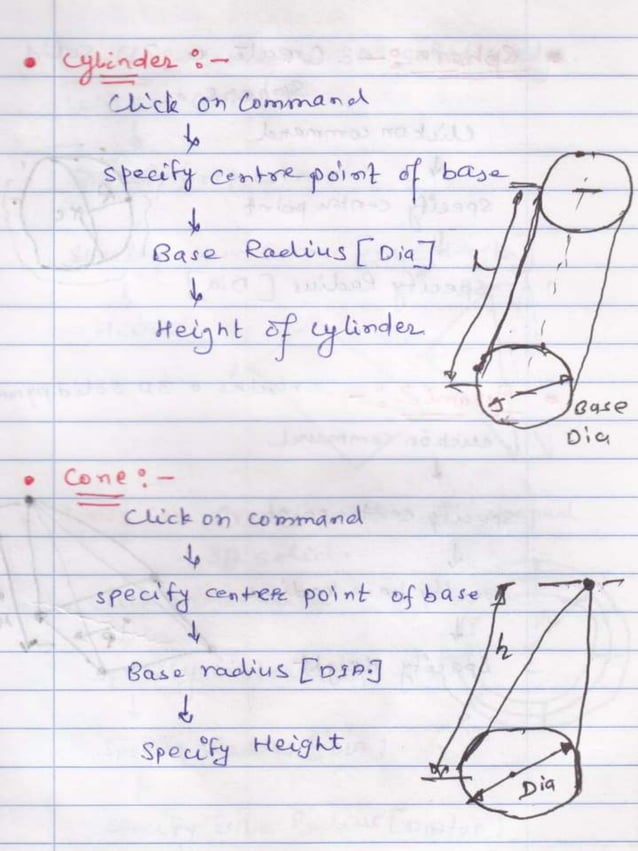 • Cylinder :-
Click on Command
↓
Specify centre point of base
↓
Base Radius [Dia]
↓
Height of cylinder
h
Base
Dia
• Cone :-
Click on command
↓
specify center point of base
↓
Base radius [DIA.]
↓
Specify Height
h
Dia